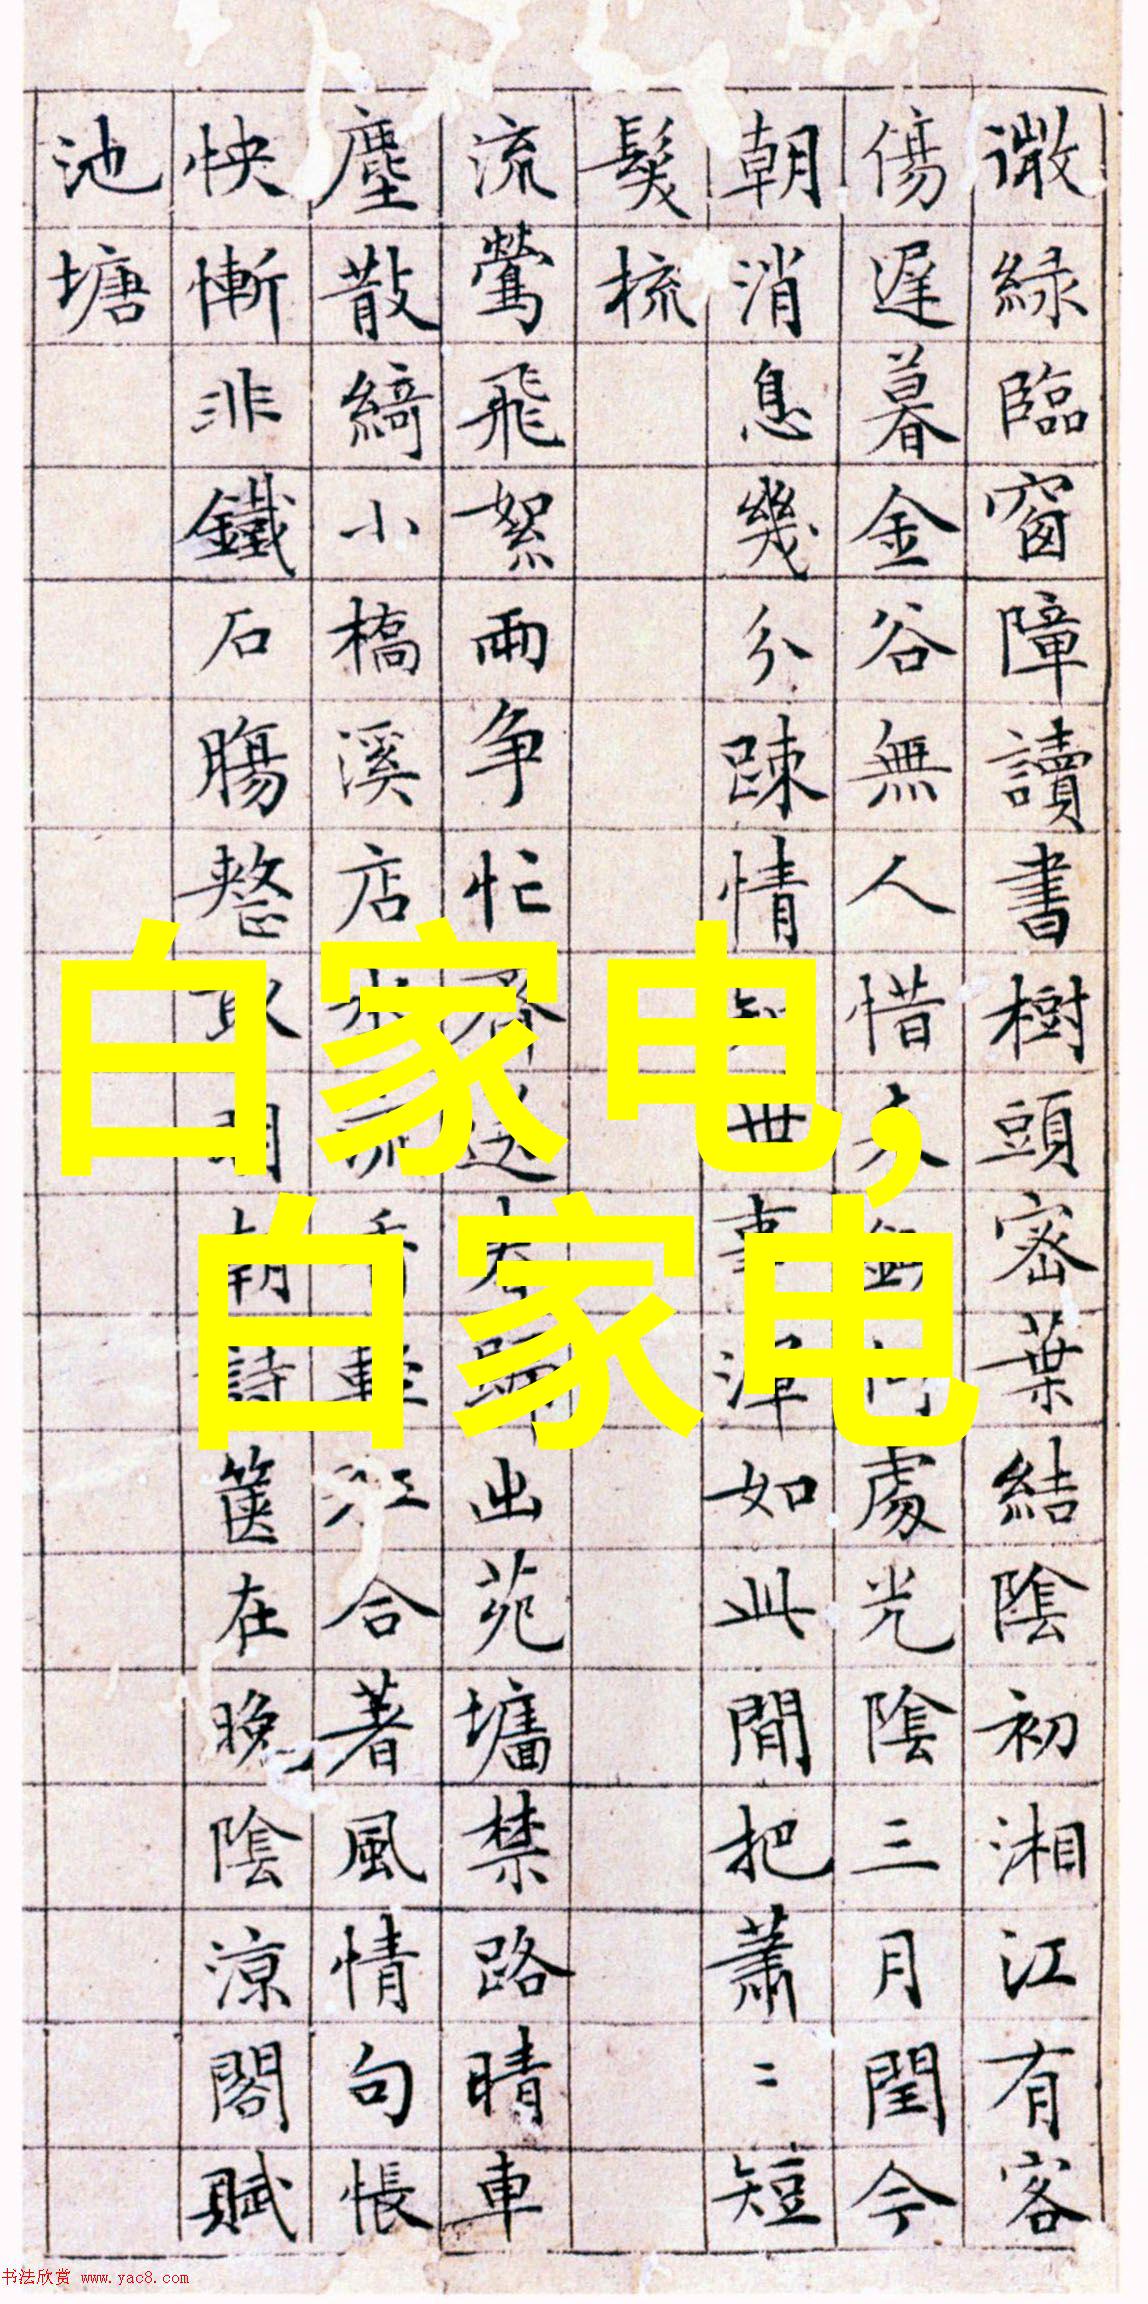 微綠臨窗障讀書樹頭密葉結陰初湘江有客
傷遲暮金谷無人惜處光陰三月閏今
朝消息幾分踈情世事渾如此間把蕭〻短
鬓梳
流鶯飛絮兩争忙出苑墻禁路晴車
塵散綺小橋溪店江合著風情句悵
怏慚非鐵石腸整詩篋在晚陰涼閣賦
池塘
白家电,
白家电
书法欣赏 www.yac8.com